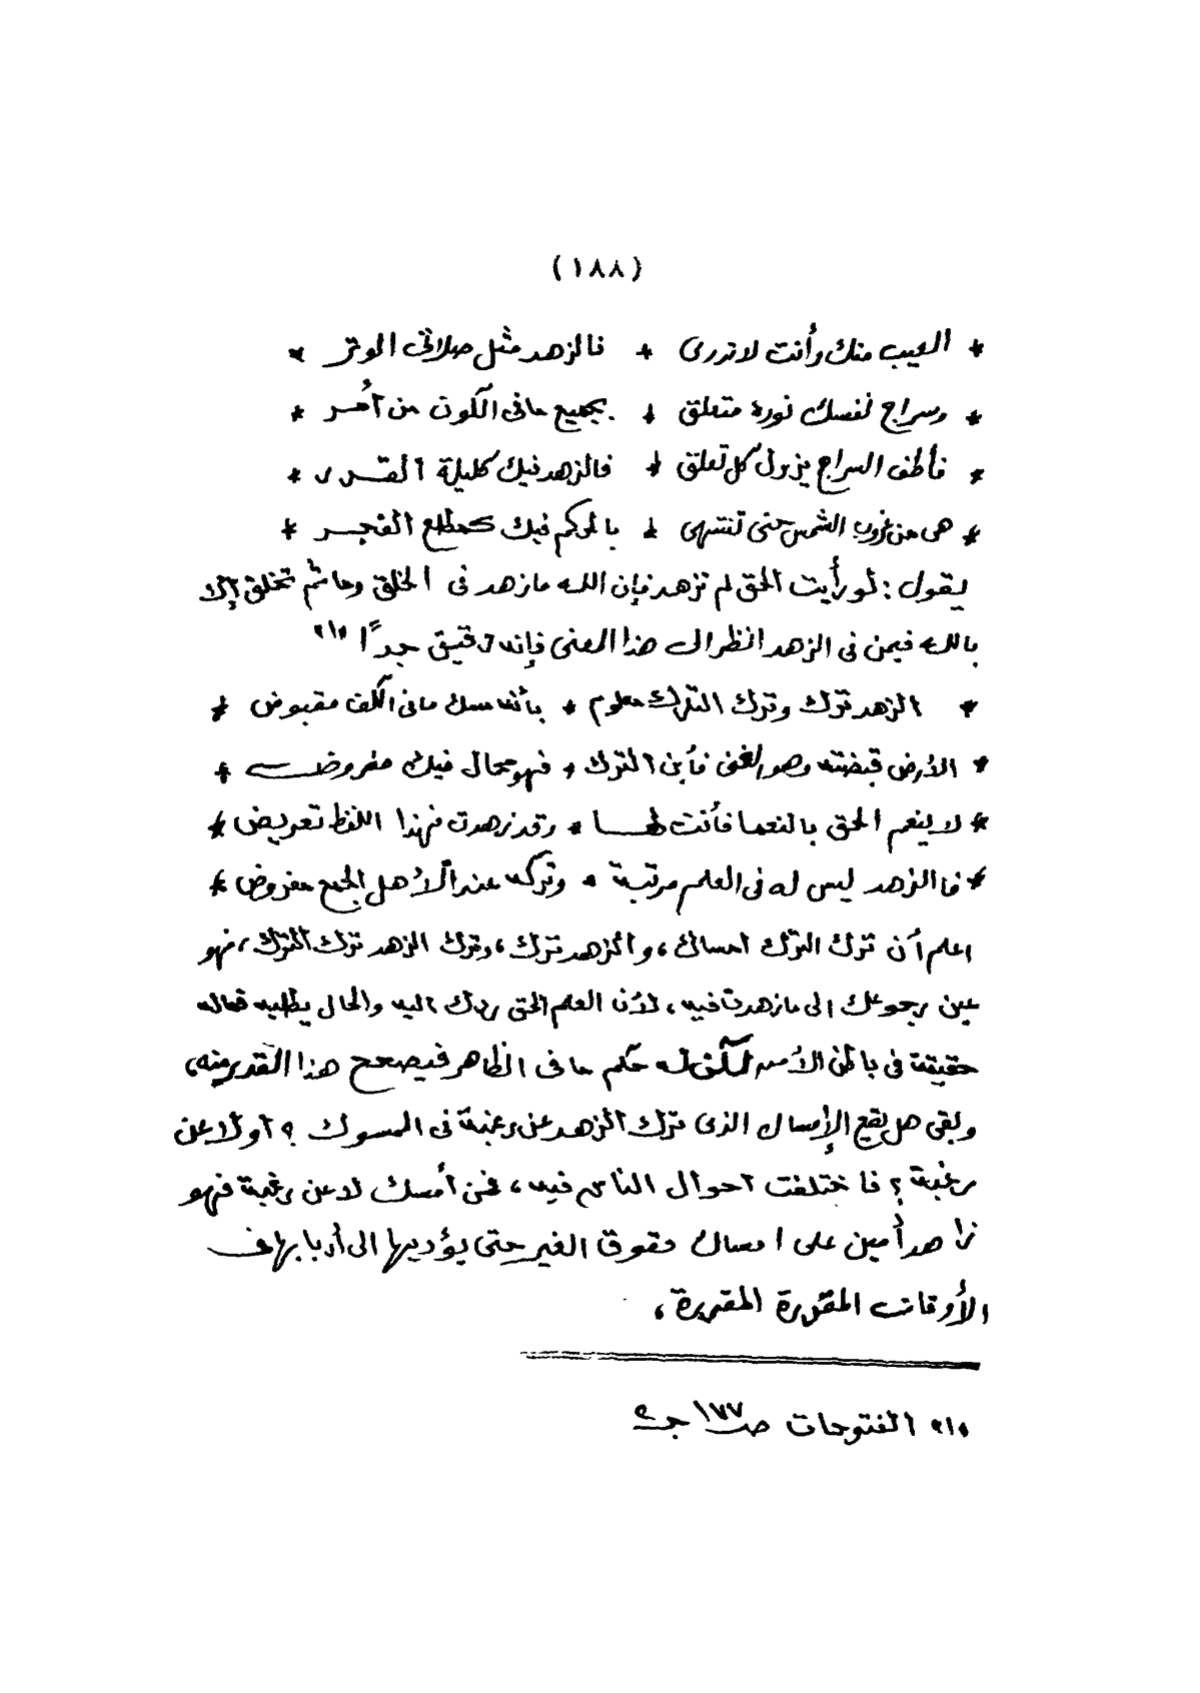 (١٨٨)
* العيب منك وأنت لا تدرى * فالزهد مثل صلاتى الوتر *
* وسراج نفسك نوره متعلق * بجميع مافى الكون من أمر *
* فأطف السراج يزول كل تعلق * فالزهد فيك كليلة القدر *
* هى من غروب الشمس حتى تنتهى * بالحكم فيك كمطلع الفجر *
يقول : لو رأيت الحق لم تزهد فإن الله مازهد فى الخلق وماثم تخلق إلا
بالله فيمن فى الزهد انظر الى هذا المعنى فإنه دقيق جداً «١»
* الزهد ترك وترك الترك معلوم * بأنه مسك مافى الكف مقبوض *
* الأرض قبضته وهو الغنى فأين الترك * فهو محال فيك مفروض *
* لا ينعم الحق بالنعما فأنت لها * وقد زهدت فهذا اللفظ تعريض *
* فالزهد ليس له فى العلم مرتبة * وتركه عند أهل الجمع مفروض *
اعلم أن ترك الترك امساك ، والزهد ترك ، وترك الزهد ترك الترك ، فهو
عين رجوعك الى مازهدت فيه ، لأن العلم الحق ردك اليه والحال يطلبه فماله
حقيقة فى باطن الأمر لكن له حكم ما فى الظاهر فيصح هذا القدر منه ،
وبقى هل يقع الإمساك الذى ترك الزهد عن رغبة فى الممسوك ؟ أو لا عن
رغبة ؟ فاختلفت احوال الناس فيه ، فمن أمسك لا عن رغبة فهو
زاهد أمين على امساك حقوق الغير حتى يؤديها الى أربابها فى
الأوقات المقدرة المقررة ،
«١» الفتوحات صـ ١٧٧ جـ ٢